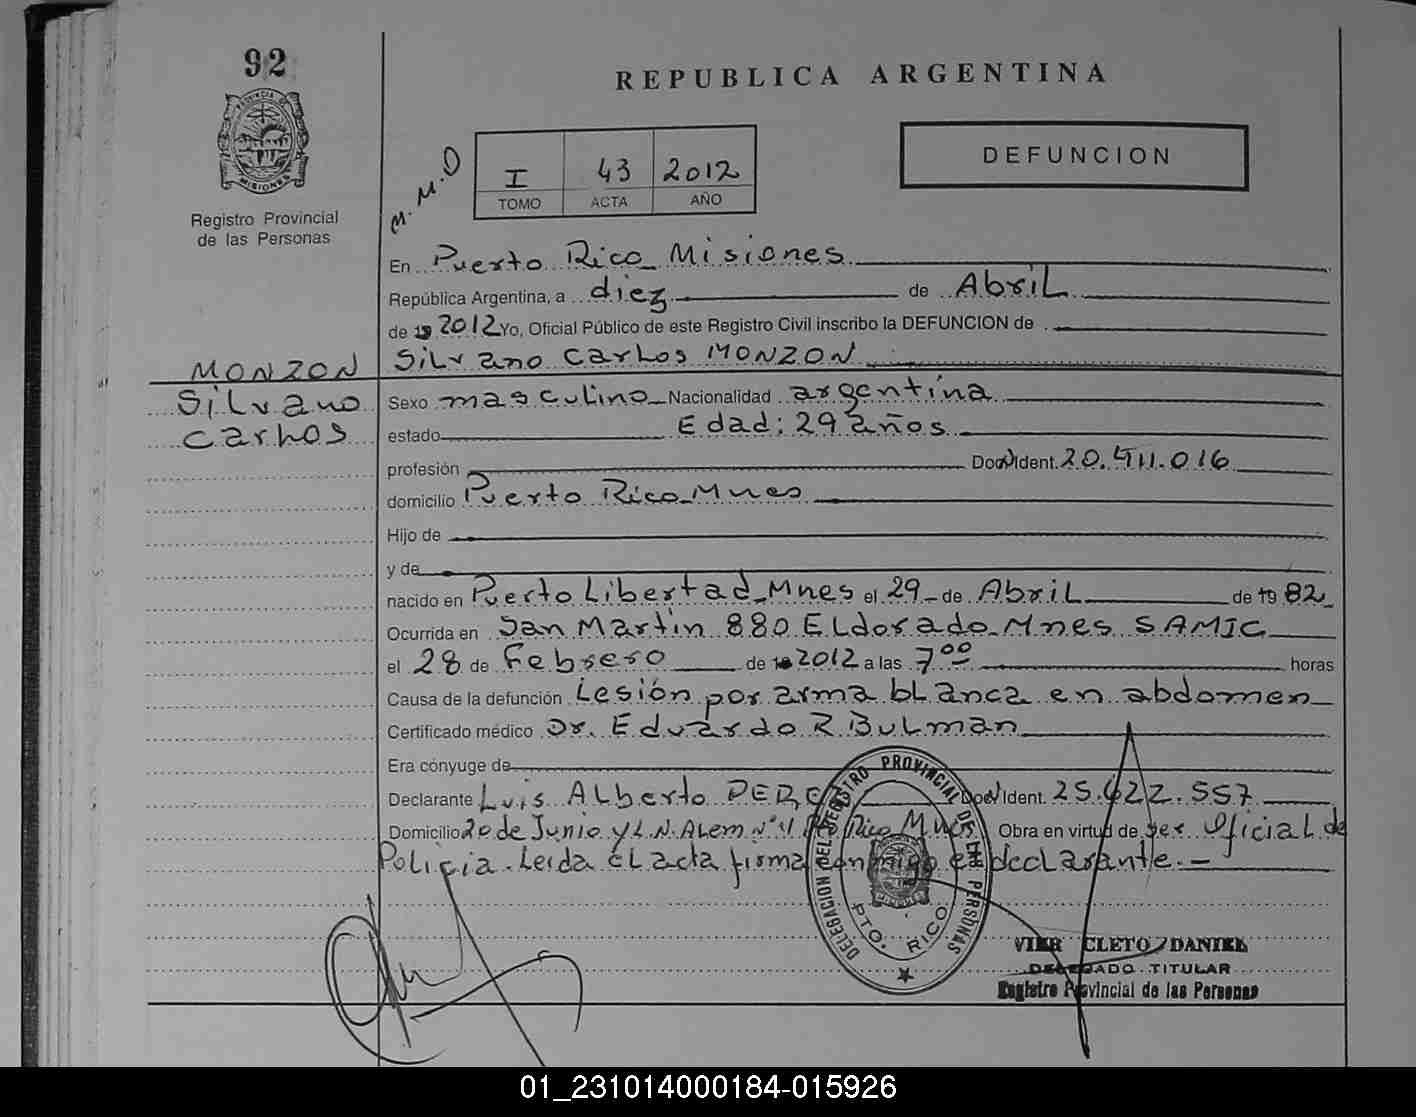 92
REPUBLICA ARGENTINA
PROVINCIA DE MISIONES
Registro Provincial
de las Personas
M.M.O
I 43 2012
TOMO ACTA AÑO
DEFUNCION
En Puerto Rico Misiones
República Argentina, a diez de Abril
de 19 2012 Yo, Oficial Público de este Registro Civil inscribo la DEFUNCION de
Silvano Carlos MONZON
MONZON
Silvano
Carlos
Sexo masculino Nacionalidad argentina
estado Edad: 29 años
profesión Doc. Ident. 20.411.016
domicilio Puerto Rico Mnes
Hijo de
y de
nacido en Puerto Libertad Mnes el 29 de Abril de 19 82
Ocurrida en San Martin 880 Eldorado Mnes SAMIC
el 28 de Febrero de 2012 a las 7°° horas
Causa de la defunción Lesión por arma blanca en abdomen
Certificado médico Dr. Eduardo R Bulman
Era cónyuge de
Declarante Luis Alberto Doc. Ident. 25.622.557
Domicilio 20 de Junio y L.N. Alem N° Pto Rico Mnes Obra en virtud de ser Oficial de
Policia. Leida el acta firma conmigo el declarante. -
DELEGACION DEL REGISTRO PROVINCIAL DE LAS PERSONAS
PTO. RICO
VIER CLETO DANIEL
DELEGADO TITULAR
Registro Provincial de las Personas
01_231014000184-015926